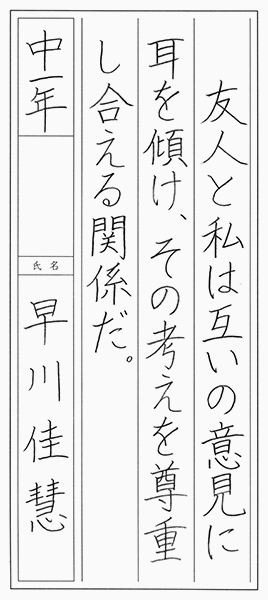 友人と私は互いの意見に
耳を傾け、その考えを尊重
し合える関係だ。
中一年
氏名
早川佳慧